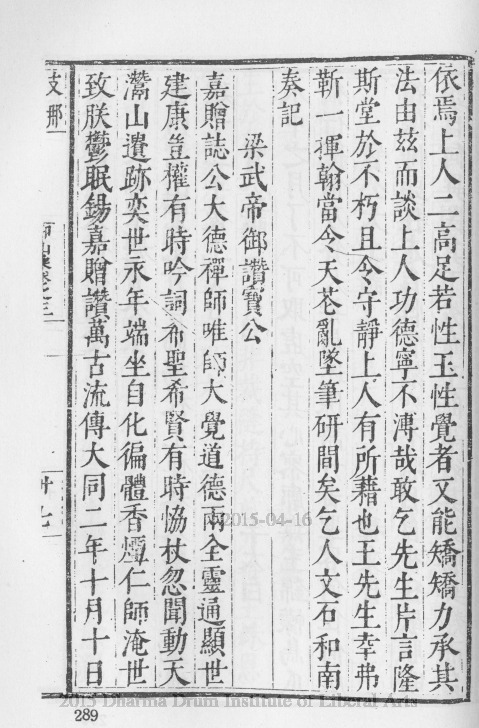 依焉上人二高足若性玉性覺者又能矯矯力承其
法由茲而談上人功德寧不溥哉敢乞先生片言隆
斯堂於不朽且令守靜上人有所藉也王先生幸弗
靳一揮翰當令天花亂墜筆研間矣乞人文石和南
奏記
梁武帝御讚寶公
嘉贈誌公大德禪師唯師大覺道德兩全靈通顯世
建康豈權有時吟詞希聖希賢有時恊杖忽聞動天
灊山遺跡奕世永年端坐自化徧體香煙仁師淹世
致朕鬱眠錫嘉贈讚萬古流傳大同二年十月十日
支那
卷三
廿七
2015-04-16
2015 Dharma Drum Institute of Liberal Arts
289